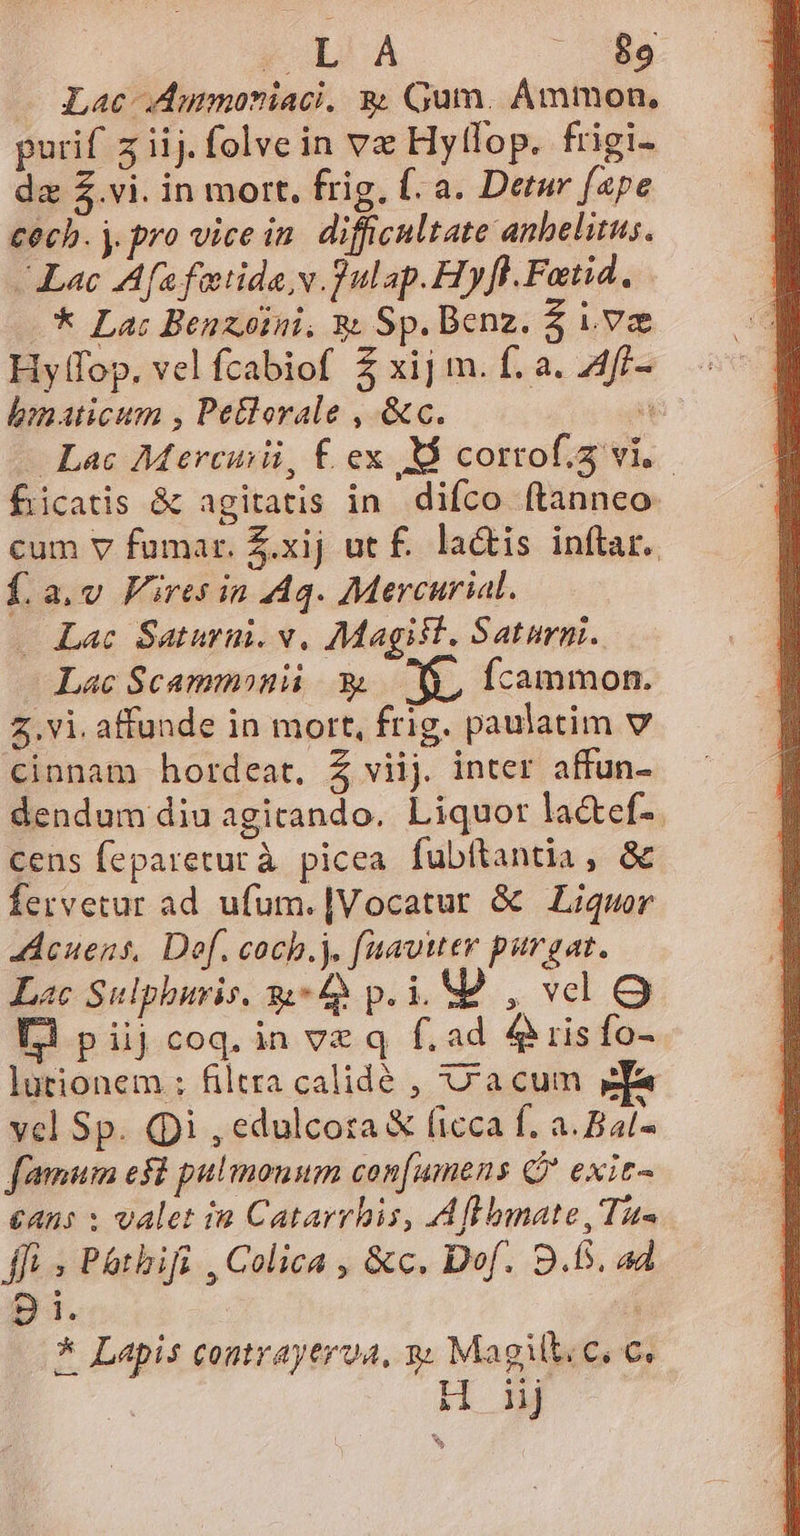 L A 89
Lac Ammoniaci. ℞ Gum. Ammon.
purif ʒ iij. ſolve in væ Hyſſop. frigi-
dæ ℥.vi. in mort. frig. ſ. a. Detur ſæpe
coch. j. pro vice in difficultate anhelitus.
Lac Aſæfœtidæ, v. Julap. Hyſt. Fœtid.
* Lac Benzoini. ℞ Sp. Benz. ℥ i. væ
Hyſſop. vel ſcabioſ ℥ xij m. ſ. a. Aſt-
hmaticum, Pectorale, &c.
Lac Mercurii, f. ex ☿ corroſ.ʒ vi.
fricatis & agitatis in diſco ſtanneo
cum ▽ fumar. ℥.xij ut f. lactis inſtar.
ſ. a. v Vires in Aq. Mercurial.
Lac Saturni. v. Magiſt. Saturni.
Lac Scammonii ℞ ſcammon.
ʒ.vi. affunde in mort, frig. paulatim ▽
cinnam hordeat. ℥ viij. inter affun-
dendum diu agitando. Liquor lacteſ-
cens ſeparetur à picea ſubſtantia, &
ſervetur ad uſum. |Vocatur & Liquor
Acuens. Doſ. coch.j. ſuaviter purgat.
Lac Sulphuris. ℞ 🜍 p. i. , vel
p iij coq. in væ q ſ. ad 🜍 ris ſo-
lutionem; filtra calidè, a cum
vel Sp. i, edulcora & ſicca ſ. a. Bal-
ſamum eſt pulmonum conſumens & exic-
cans: valet in Catarrhis, Aſthmate, Tu-
ſſi, Pthiſi, Colica, &c. Doſ. ℈.ß. ad
℈ i.
* Lapis contrayerva, ℞ Magiſt. c. c.
H iij